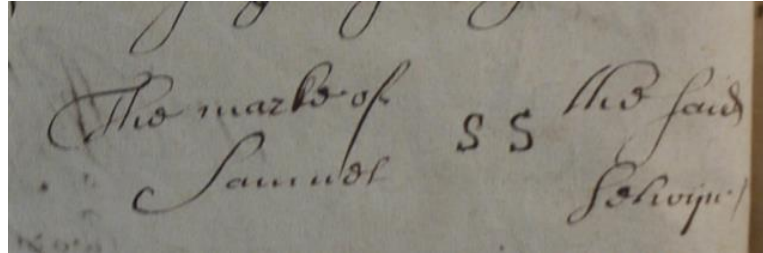 The marke of S S the said
Samuel Selwyn